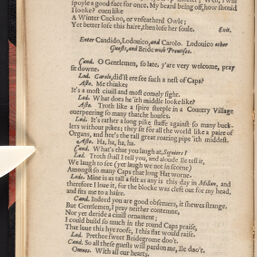 spoyle a good face for me, My beard being off, how should
I looke? euen like
A Winter Cuckoo, or vnfeatherd Owle;
Yet better lose this haire, then lose her soule. Exit.
Enter Candido, Lodouico, and Carolo: Lodouico other
Guests, and Bride with Prentises.
Cand. O Gentlemen, so late, y'are very welcome, pray
sit downe.
Lod. Carolo, did'st ere see such a nest of Caps?
Asto. Me thinkes
It's a most ciuill and most comely sight.
Lod. What does he i'th middle looke like?
Asto. Troth like a spire steeple in a Country Village
ouerpeering so many thatcht houses.
Lod. It's rather a long pike staffe against so many buck-
lers without pikes; they sit for all the world like a paire of
Organs, and her's the tall great roaring pipe ith middest.
Asto. Ha, ha, ha, ha.
Cand. What's that you laugh at, Signiors?
Lod. Troth shall I tell you, and aloude Ile tell it,
We laugh to see (yet laugh we not in scorne)
Amongst so many Caps that long Hat worne.
Lodo. Mine is as tall a felt as any is this day in Millan, and
therefore I loue it, for the blocke was cleft out for my head,
and fits me to a haire.
Cand. Indeed you are good obseruers, it shewes strange.
But Gentlemen, I pray neither contemne,
Nor yet deride a ciuill ornament;
I could build so much in the round Caps praise,
That loue this hye roofe, I this flat would raise.
Lod. Prethee sweet Bridegroome doo't.
Cand. So all these guests will pardon me, Ile dao't.
Omnes. With all our hearts.